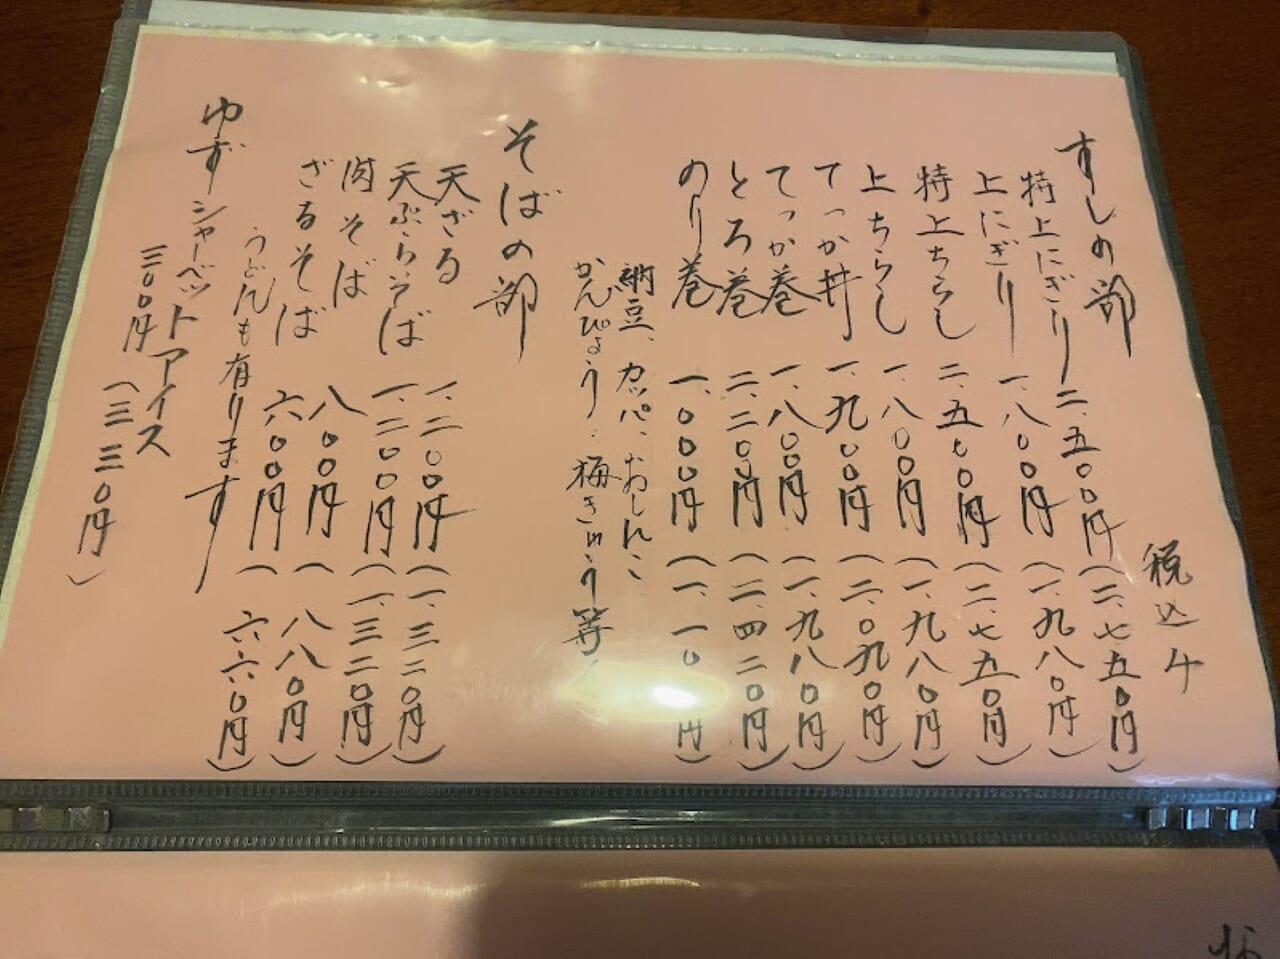 すしの部
税込み
特上にぎり 二、五〇〇円(二、七五〇円)
上にぎり 一、八〇〇円(一、九八〇円)
特上ちらし 二、五〇〇円(二、七五〇円)
上ちらし 一、八〇〇円(一、九八〇円)
てっか丼 一、九〇〇円(二、〇九〇円)
てっか巻 一、八〇〇円(一、九八〇円)
とろ巻 二、二〇〇円(二、四二〇円)
のり巻 一、〇〇〇円(一、一〇〇円)
納豆、カッパ、おしんこ
かんぴょう、梅きゅう等々
そばの部
天ざる 一、二〇〇円(一、三二〇円)
天ぷらそば 一、二〇〇円(一、三二〇円)
肉そば 八〇〇円(八八〇円)
ざるそば 六〇〇円(六六〇円)
うどんも有ります
ゆずシャーベットアイス
三〇〇円(三三〇円)